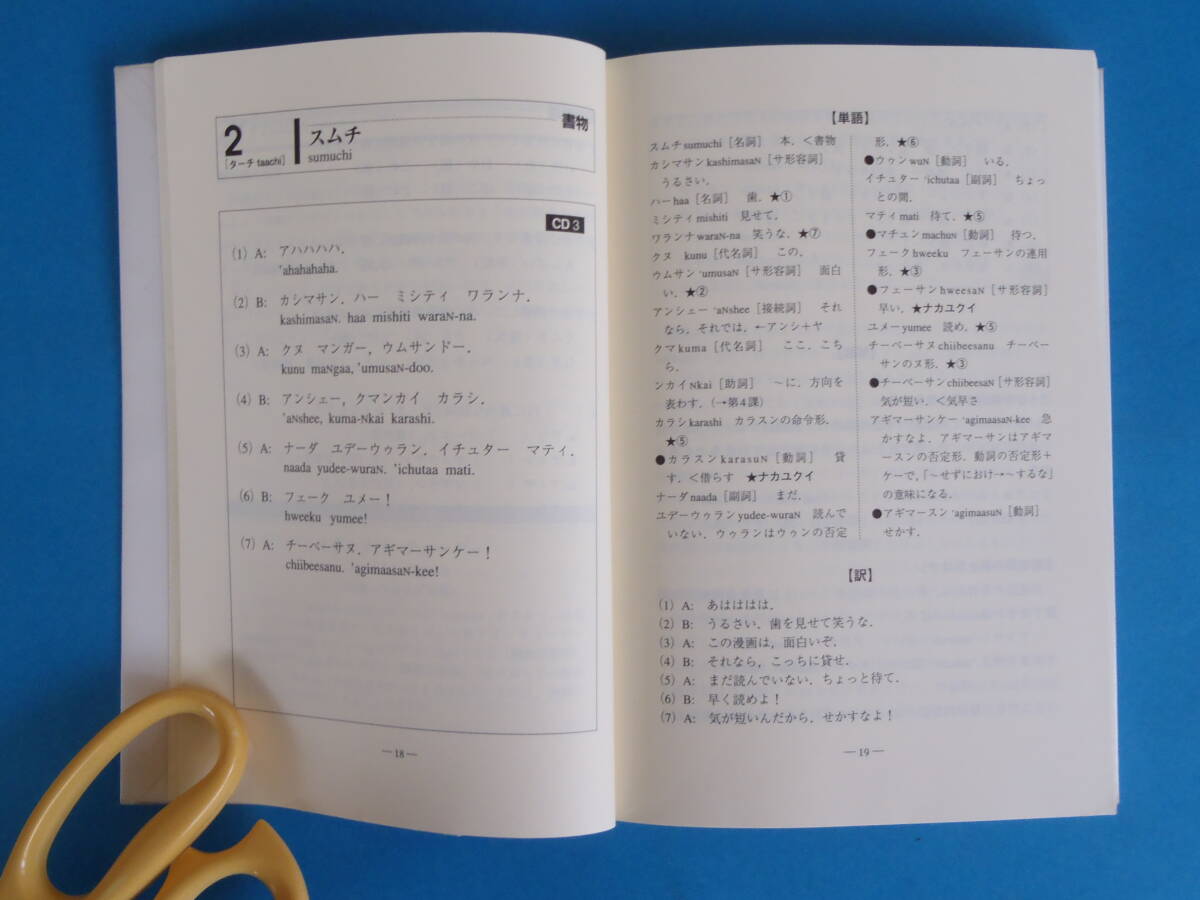 2
[ターチ taachi]
スムチ
sumuchi
書物
CD 3
(1) A: アハハハハ.
'ahahahaha.
(2) B: カシマサン. ハー ミシティ ワランナ.
kashimasaN. haa mishiti waraN-na.
(3) A: クヌ マンガー, ウムサンドー.
kunu maNgaa, 'umusaN-doo.
(4) B: アンシェー, クマンカイ カラシ.
'aNshee, kuma-Nkai karashi.
(5) A: ナーダ ユデーウゥラン. イチュター マティ.
naada yudee-wuraN. 'ichutaa mati.
(6) B: フェーク ユメー!
hweeku yumee!
(7) A: チーベーサヌ. アギマーサンケー!
chiibeesanu. 'agimaasaN-kee!
—18—
【単語】
スムチsumuchi [名詞] 本. <書物
カシマサンkashimasaN [サ形容詞]
うるさい.
ハーhaa [名詞] 歯. ★①
ミシティmishiti 見せて.
ワランナwaraN-na 笑うな. ★⑦
クヌ kunu [代名詞] この.
ウムサン 'umusaN [サ形容詞] 面白
い. ★②
アンシェー 'aNshee [接続詞] それ
なら. それでは. ←アンシ+ヤ
クマkuma [代名詞] ここ. こち
ら.
ンカイNkai [助詞] ～に. 方向を
表わす. (→第4課)
カラシkarashi カラスンの命令形.
★⑤
●カラスンkarasuN [動詞] 貸
す. <借らす ★ナカユクイ
ナーダnaada [副詞] まだ.
ユデーウゥランyudee-wuraN 読んで
いない. ウゥランはウゥンの否定
形. ★⑥
●ウゥンwuN [動詞] いる.
イチュター 'ichutaa [副詞] ちょっ
との間.
マティmati 待て. ★⑤
●マチュンmachuN [動詞] 待つ.
フェークhweeku フェーサンの連用
形. ★③
●フェーサンhweesaN [サ形容詞]
早い. ★ナカユクイ
ユメーyumee 読め. ★⑤
チーベーサヌchiibeesanu チーベー
サンのヌ形. ★③
●チーベーサンchiibeesaN [サ形容詞]
気が短い. <気早さ
アギマーサンケー 'agimaasaN-kee 急
かすなよ. アギマーサンはアギマ
ースンの否定形. 動詞の否定形+
ケーで,「～せずにおけ→～するな」
の意味になる.
●アギマースン 'agimaasuN [動詞]
せかす.
【訳】
(1) A: あはははは.
(2) B: うるさい. 歯を見せて笑うな.
(3) A: この漫画は, 面白いぞ.
(4) B: それなら, こっちに貸せ.
(5) A: まだ読んでいない. ちょっと待て.
(6) B: 早く読めよ!
(7) A: 気が短いんだから. せかすなよ!
—19—